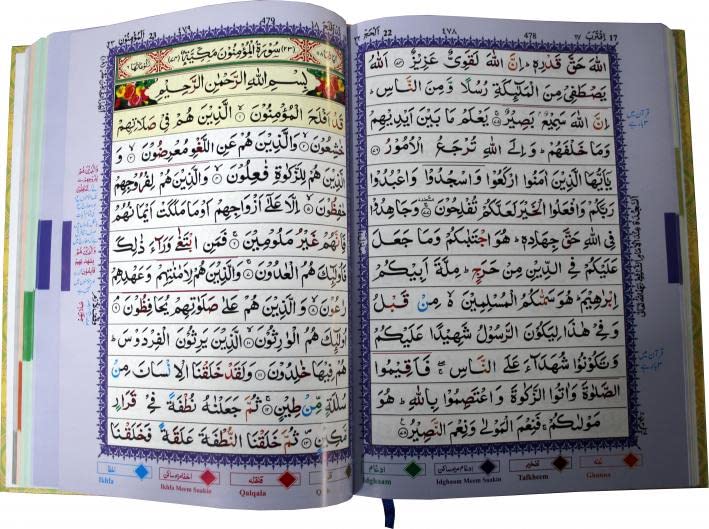 اقترب 17
478
٤٧٨
22 الحج ٢٢
اللّٰهَ حَقَّ قَدْرِهٖ ؕ اِنَّ اللّٰهَ لَقَوِیٌّ عَزِیْزٌ ۟ اَللّٰهُ
یَصْطَفِیْ مِنَ الْمَلٰٓئِكَةِ رُسُلًا وَّ مِنَ النَّاسِ ؕ
اِنَّ اللّٰهَ سَمِیْعٌۢ بَصِیْرٌ ۟ یَعْلَمُ مَا بَیْنَ اَیْدِیْهِمْ
وَمَا خَلْفَهُمْ ؕ وَاِلَی اللّٰهِ تُرْجَعُ الْاُمُوْرُ ۟
یٰۤاَیُّهَا الَّذِیْنَ اٰمَنُوا ارْكَعُوْا وَاسْجُدُوْا وَاعْبُدُوْا
رَبَّكُمْ وَافْعَلُوا الْخَیْرَ لَعَلَّكُمْ تُفْلِحُوْنَ ۟ وَجَاهِدُوْا
فِی اللّٰهِ حَقَّ جِهَادِهٖ ؕ هُوَ اجْتَبٰىكُمْ وَمَا جَعَلَ
عَلَیْكُمْ فِی الدِّیْنِ مِنْ حَرَجٍ ؕ مِلَّةَ اَبِیْكُمْ
اِبْرٰهِیْمَ ؕ هُوَ سَمّٰىكُمُ الْمُسْلِمِیْنَ ۙ۬ مِنْ قَبْلُ
وَفِیْ هٰذَا لِیَكُوْنَ الرَّسُوْلُ شَهِیْدًا عَلَیْكُمْ
وَتَكُوْنُوْا شُهَدَآءَ عَلَی النَّاسِ ۖۚ فَاَقِیْمُوا
الصَّلٰوةَ وَاٰتُوا الزَّكٰوةَ وَاعْتَصِمُوْا بِاللّٰهِ ؕ هُوَ
مَوْلٰىكُمْ ۚ فَنِعْمَ الْمَوْلٰی وَنِعْمَ النَّصِیْرُ ۟
غنه
Ghunna
ادغام میم ساکن
Idghaam Meem Saakin
ادغام
479
٤٧٩
23 المؤمنون ٢٣
سُوْرَةُ الْمُؤْمِنُوْنَ مَكِّیَّةٌ
بِسْمِ اللّٰهِ الرَّحْمٰنِ الرَّحِیْمِ
قَدْ اَفْلَحَ الْمُؤْمِنُوْنَ ۟ الَّذِیْنَ هُمْ فِیْ صَلَاتِهِمْ
خٰشِعُوْنَ ۟ وَالَّذِیْنَ هُمْ عَنِ اللَّغْوِ مُعْرِضُوْنَ ۟ وَ
الَّذِیْنَ هُمْ لِلزَّكٰوةِ فٰعِلُوْنَ ۟ وَالَّذِیْنَ هُمْ لِفُرُوْجِهِمْ
حٰفِظُوْنَ ۟ اِلَّا عَلٰۤی اَزْوَاجِهِمْ اَوْ مَا مَلَكَتْ اَیْمَانُهُمْ
فَاِنَّهُمْ غَیْرُ مَلُوْمِیْنَ ۟ فَمَنِ ابْتَغٰی وَرَآءَ ذٰلِكَ
فَاُولٰٓئِكَ هُمُ الْعٰدُوْنَ ۟ وَالَّذِیْنَ هُمْ لِاَمٰنٰتِهِمْ وَعَهْدِهِمْ
رٰعُوْنَ ۟ وَالَّذِیْنَ هُمْ عَلٰی صَلَوٰتِهِمْ یُحَافِظُوْنَ ۟
اُولٰٓئِكَ هُمُ الْوٰرِثُوْنَ ۟ الَّذِیْنَ یَرِثُوْنَ الْفِرْدَوْسَ ؕ
هُمْ فِیْهَا خٰلِدُوْنَ ۟ وَلَقَدْ خَلَقْنَا الْاِنْسَانَ مِنْ
سُلٰلَةٍ مِّنْ طِیْنٍ ۟ ثُمَّ جَعَلْنٰهُ نُطْفَةً فِیْ قَرَارٍ
مَّكِیْنٍ ۟ ثُمَّ خَلَقْنَا النُّطْفَةَ عَلَقَةً فَخَلَقْنَا
قلقله
Qalqala
اخفا میم ساکن
Ikhfa Meem Saakin
اخفا
Ikhfa